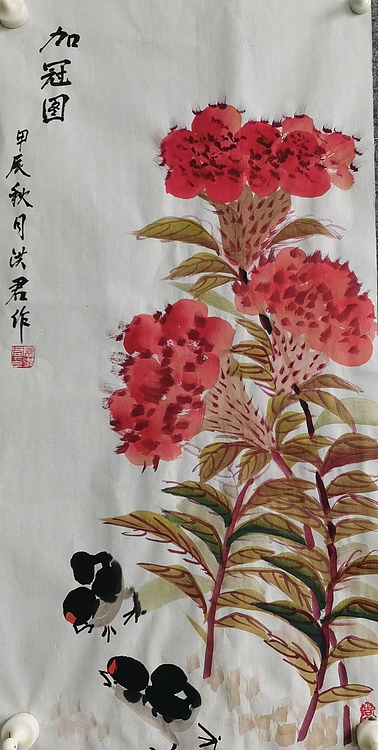 加冠图
甲辰秋月洪君作